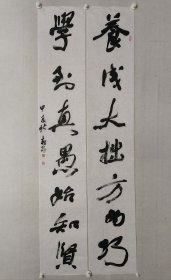 養成大拙方為巧
學到真愚始知賢